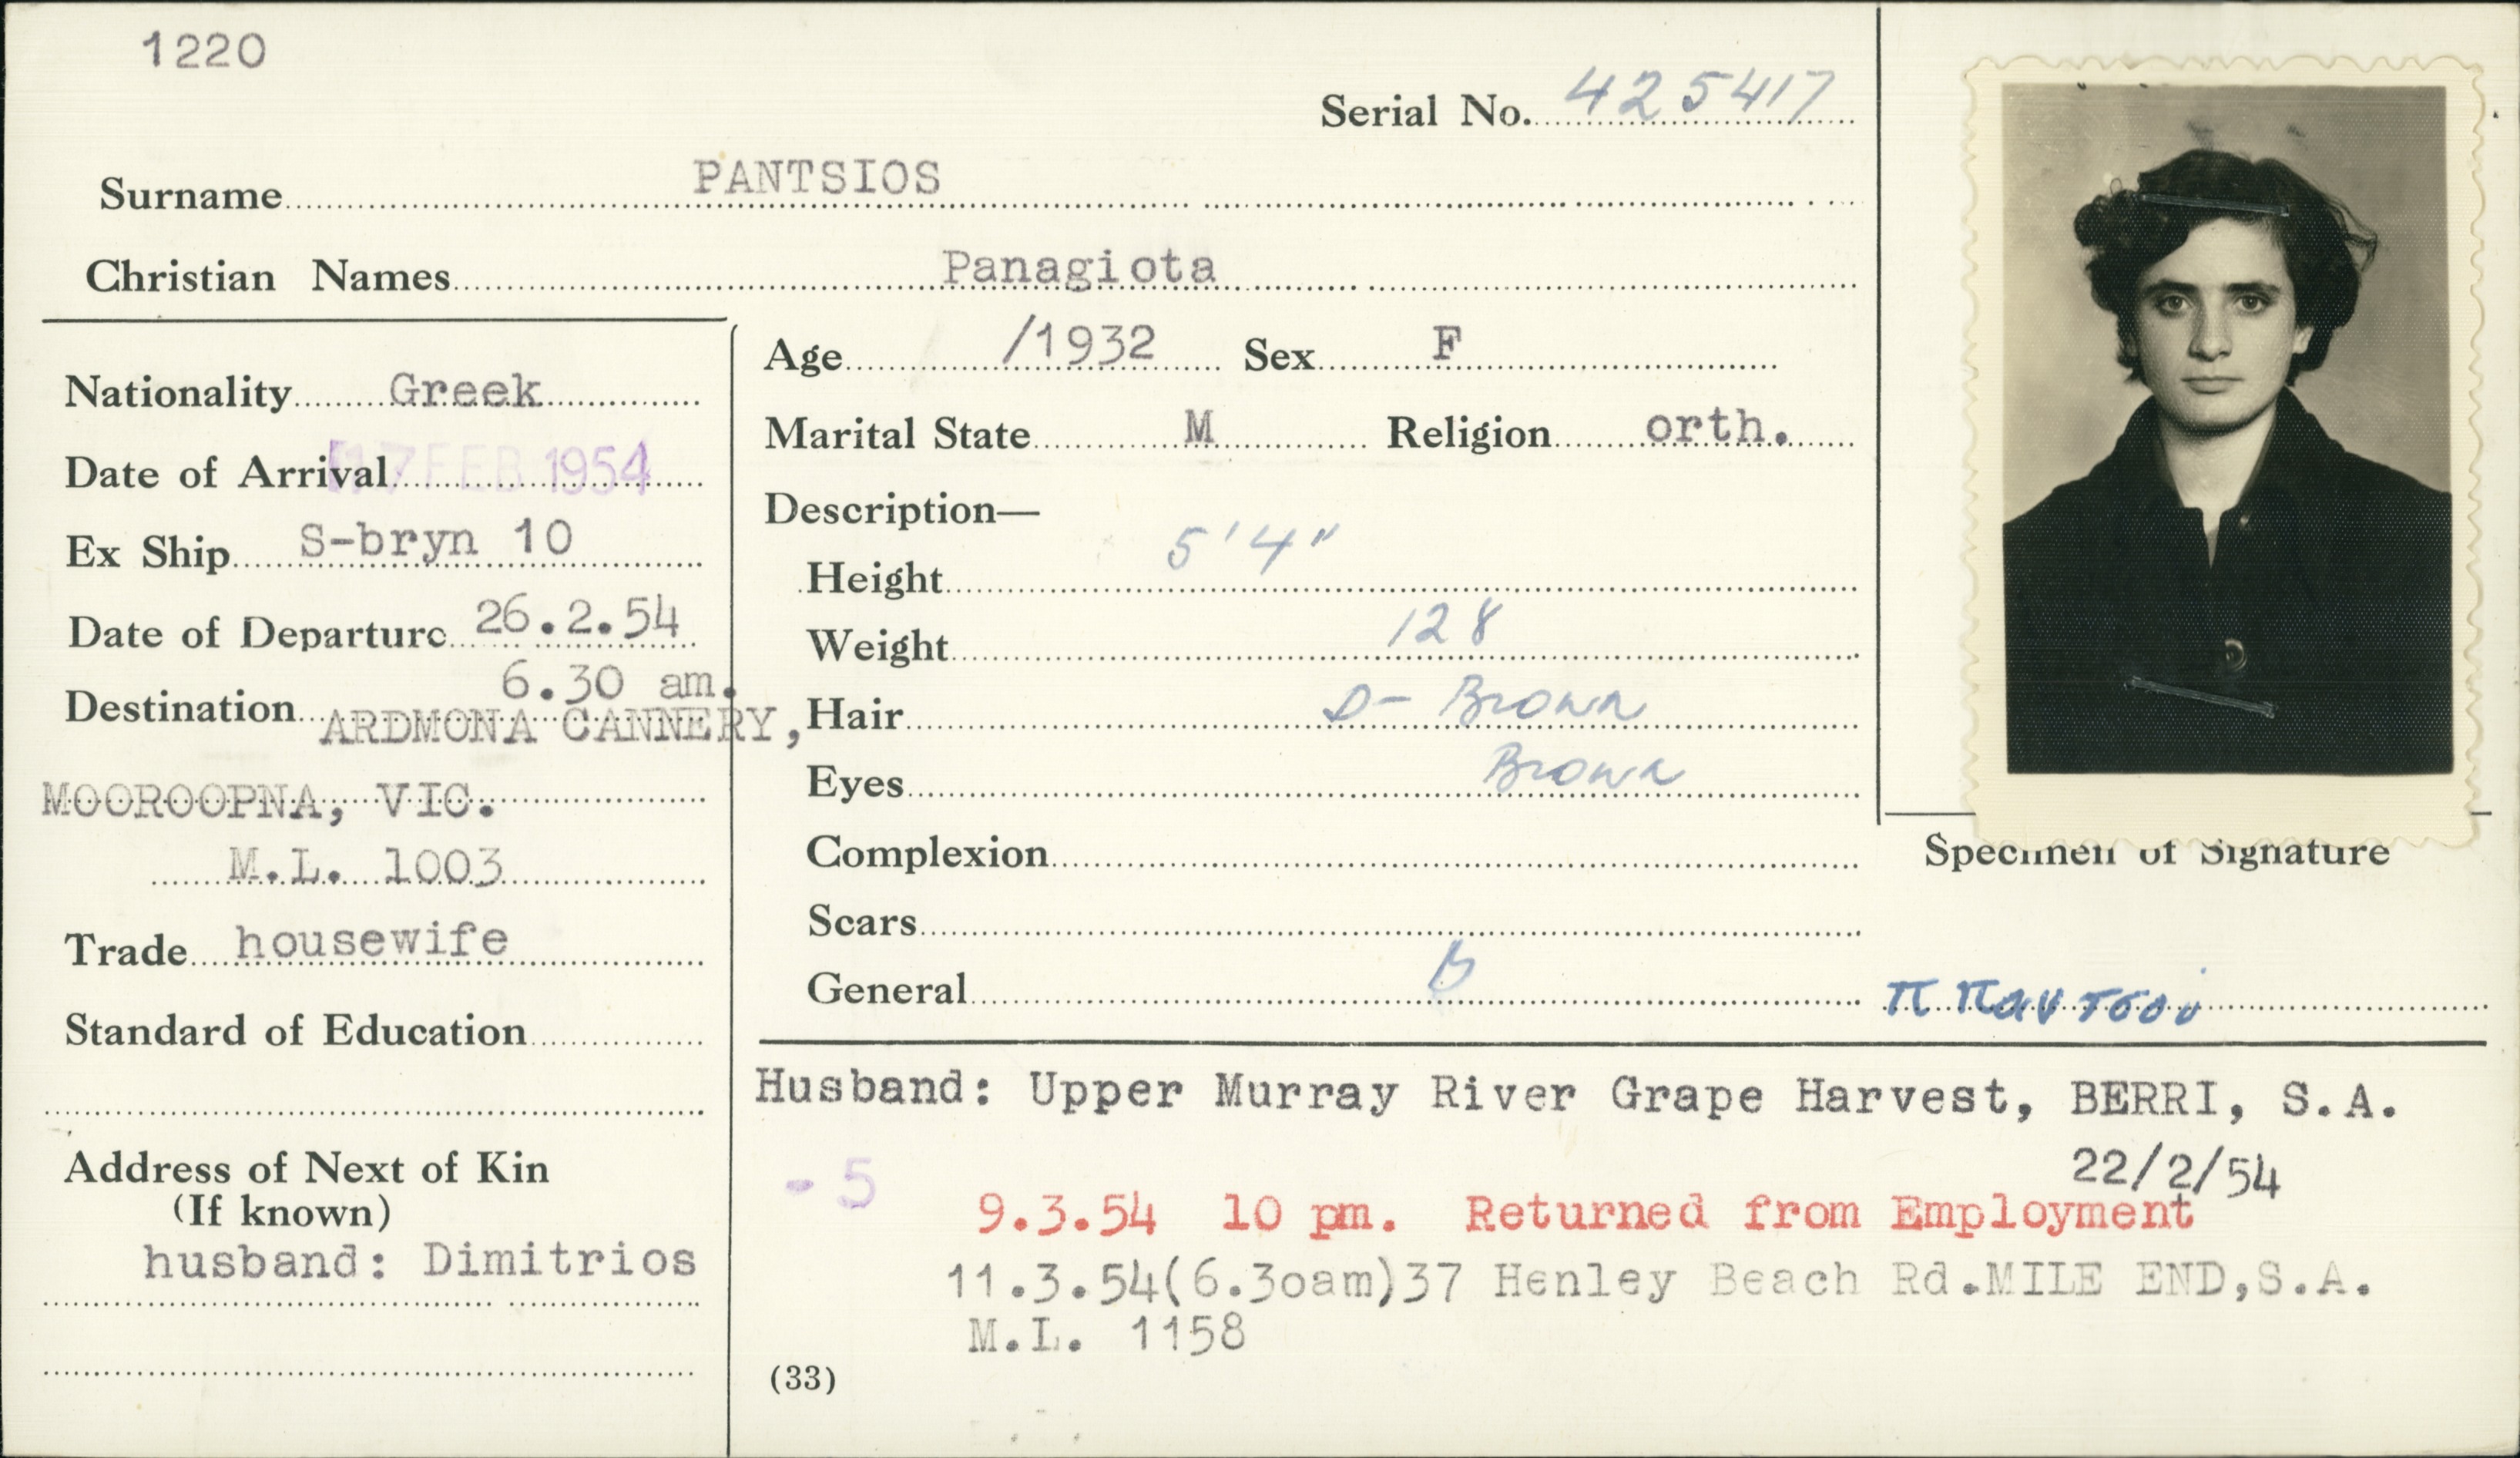 1220
Serial No. 425417
Surname PANTSIOS
Christian Names Panagiota
Nationality Greek
Date of Arrival 17 FEB 1954
Ex Ship S-bryn 10
Date of Departure 26.2.54
6.30 am.
Destination ARDMONA CANNERY,
MOOROOPNA, VIC.
M.L. 1003
Trade housewife
Standard of Education
Address of Next of Kin
(If known)
husband: Dimitrios
Age /1932 Sex F
Marital State M Religion orth.
Description—
Height 5'4"
Weight 128
Hair D- Brown
Eyes Brown
Complexion
Scars
General
Specimen of Signature
Husband: Upper Murray River Grape Harvest, BERRI, S.A.
22/2/54
- 5
9.3.54 10 pm. Returned from Employment
11.3.54(6.3oam)37 Henley Beach Rd.MILE END,S.A.
M.L. 1158
(33)